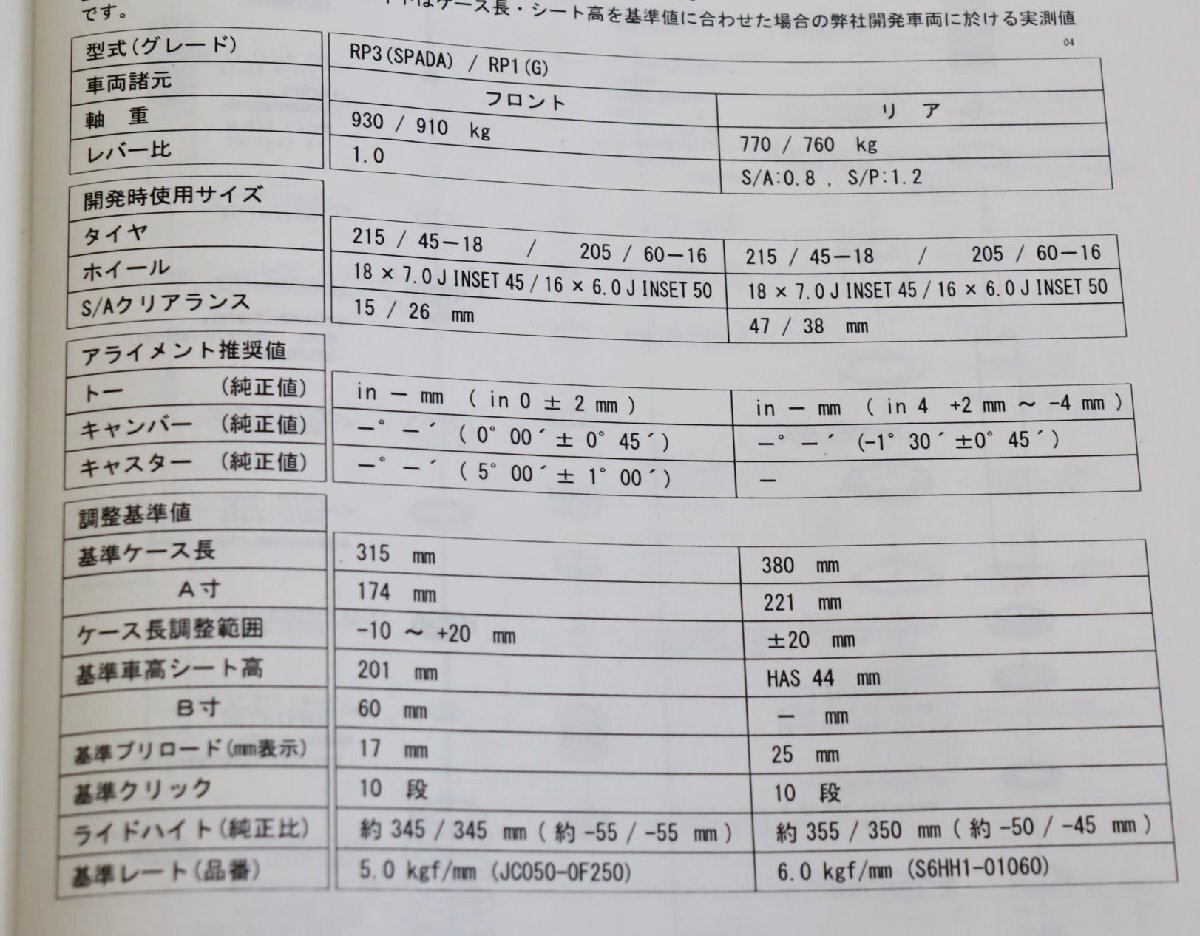 ケース長・シート高を基準値に合わせた場合の弊社開発車両に於ける実測値
です。
04
型式(グレード) RP3(SPADA) / RP1(G)
車両諸元 フロント リア
軸 重 930 / 910 kg 770 / 760 kg
レバー比 1.0 S/A:0.8 , S/P:1.2
開発時使用サイズ
タイヤ 215 / 45-18 / 205 / 60-16 215 / 45-18 / 205 / 60-16
ホイール 18 × 7.0J INSET 45 / 16 × 6.0J INSET 50 18 × 7.0J INSET 45 / 16 × 6.0J INSET 50
S/Aクリアランス 15 / 26 mm 47 / 38 mm
アライメント推奨値
トー (純正値) in - mm ( in 0 ± 2 mm ) in - mm ( in 4 +2 mm ~ -4 mm )
キャンバー (純正値) -° -´ ( 0° 00´± 0° 45´) -° -´ (-1° 30´±0° 45´)
キャスター (純正値) -° -´ ( 5° 00´± 1° 00´) -
調整基準値
基準ケース長 315 mm 380 mm
A寸 174 mm 221 mm
ケース長調整範囲 -10 ~ +20 mm ±20 mm
基準車高シート高 201 mm HAS 44 mm
B寸 60 mm - mm
基準プリロード(mm表示) 17 mm 25 mm
基準クリック 10 段 10 段
ライドハイト(純正比) 約 345 / 345 mm ( 約 -55 / -55 mm ) 約 355 / 350 mm ( 約 -50 / -45 mm )
基準レート(品番) 5.0 kgf/mm (JC050-0F250) 6.0 kgf/mm (S6HH1-01060)